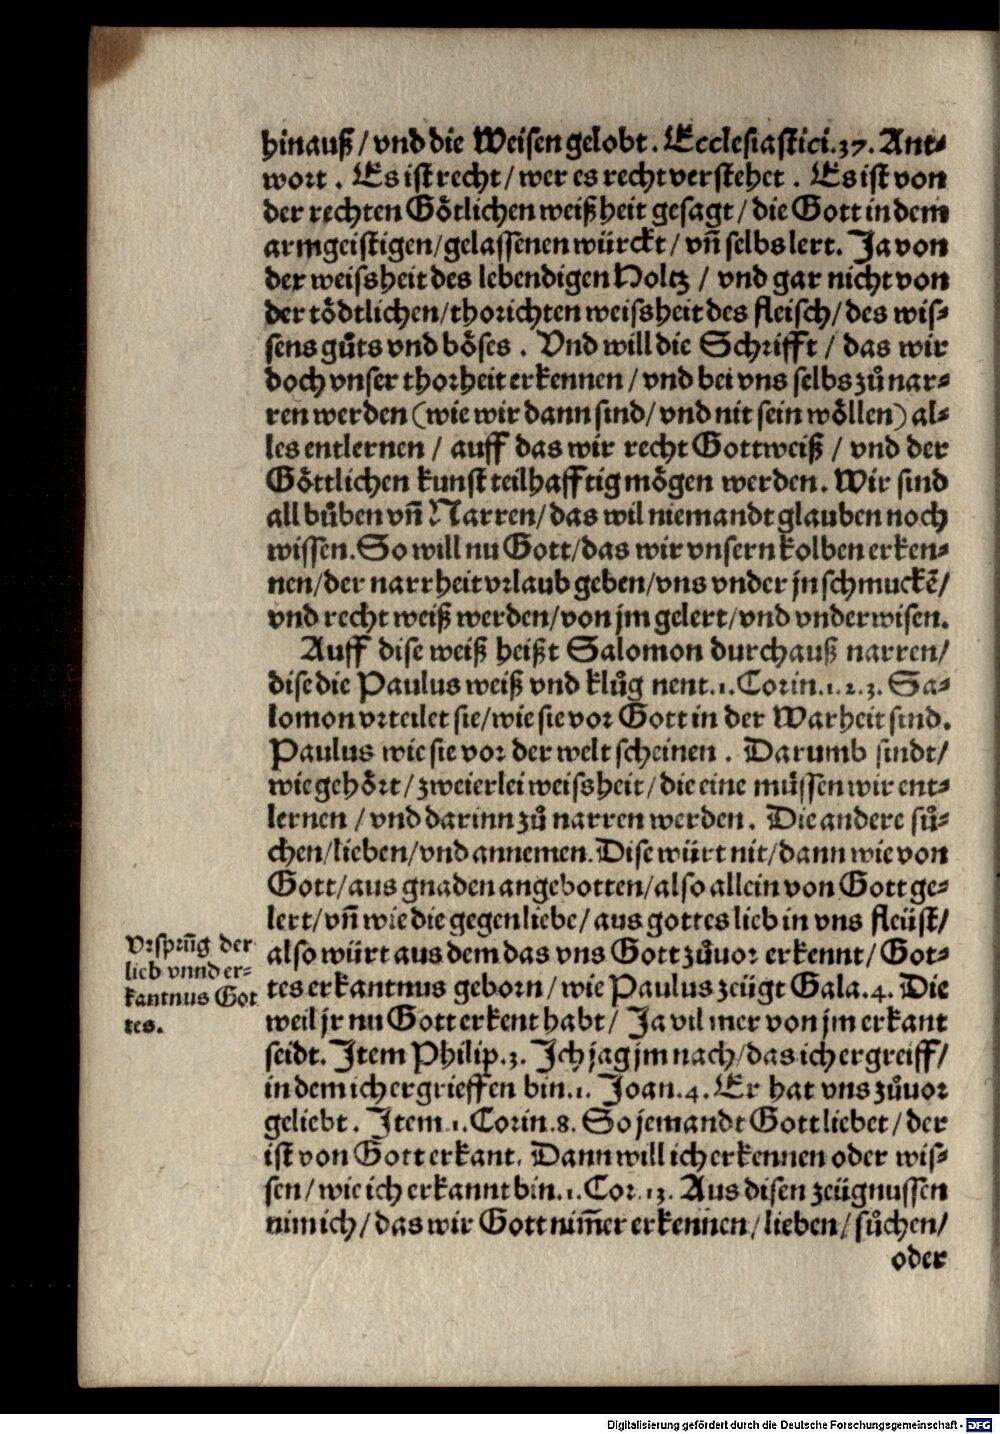 hinauß / vnd die Weisen gelobt. Ecclesiastici.37. Ant-
wort. Es ist recht / wer es recht verstehet. Es ist von
der rechten Götlichen weißheit gesagt / die Gott in dem
armgeistigen / gelassenen würckt / vñ selbs lert. Ja von
der weissheit des lebendigen Holtz / vnd gar nicht von
der tödtlichen / thorichten weissheit des fleisch / des wis-
sens gůts vnd böses. Vnd will die Schrifft / das wir
doch vnser thorheit erkennen / vnd bei vns selbs zů nar-
ren werden (wie wir dann sind / vnd nit sein wöllen) al-
les entlernen / auff das wir recht Gottweiß / vnd der
Göttlichen kunst teilhafftig mögen werden. Wir sind
all bůben vñ Narren / das wil niemandt glauben noch
wissen. So will nu Gott / das wir vnsern kolben erken-
nen / der narrheit vrlaub geben / vns vnder jn schmuckẽ /
vnd recht weiß werden / von jm gelert / vnd vnderwisen.
Auff dise weiß heißt Salomon durchauß narren /
dise die Paulus weiß vnd klůg nent. 1. Corin. 1. 2. 3. Sa-
lomon vrteilet sie / wie sie vor Gott in der Warheit sind.
Paulus wie sie vor der welt scheinen. Darumb sindt /
wie gehört / zweierlei weissheit / die eine müssen wir ent-
lernen / vnd darinn zů narren werden. Die andere sů-
chen / lieben / vnd annemen. Dise würt nit / dann wie von
Gott / aus gnaden angebotten / also allein von Gott ge-
lert / vñ wie die gegenliebe / aus gottes lieb in vns fleüst /
also würt aus dem das vns Gott zůuor erkennt / Got-
tes erkantnus geborn / wie Paulus zeügt Gala. 4. Die
weil jr nu Gott erkent habt / Ja vil mer von jm erkant
seidt. Item Philip. 3. Ich jag jm nach / das ich ergreiff /
in dem ich ergrieffen bin. 1. Joan. 4. Er hat vns zůuor
geliebt. Item. 1. Corin. 8. So jemandt Gott liebet / der
ist von Gott erkant. Dann will ich erkennen oder wis-
sen / wie ich erkannt bin. 1. Cor. 13. Aus disen zeügnussen
nim ich / das wir Gott nim̃er erkennen / lieben / sůchen /
oder
Vrsprũg der
lieb vnnd er-
kantnus Got
tes.
Digitalisierung gefördert durch die Deutsche Forschungsgemeinschaft - DFG